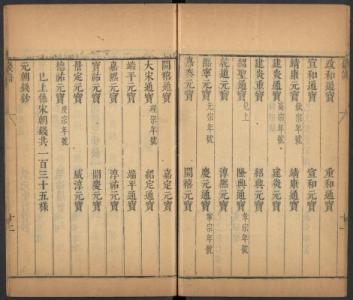 政和通寶 重和通寶
宣和通寶 宣和元寶
靖康元寶欽宗年號 靖康通寶
建炎通寶高宗年號 建炎元寶
建炎重寶 紹興元寶
紹聖通寶已上 隆興通寶孝宗年號
乾道元寶 淳熙元寶
紹熙元寶光宗年號 慶元通寶寧宗年號
嘉泰元寶 開禧元寶
開禧通寶 嘉定元寶
大宋通寶理宗年號 紹定通寶
端平元寶 端平通寶
嘉熙元寶 淳祐元寶
寶祐元寶 開慶元寶
景定元寶 咸淳元寶
德祐元寶度宗年號
已上係宋朝錢共一百三十五樣
元朝錢鈔